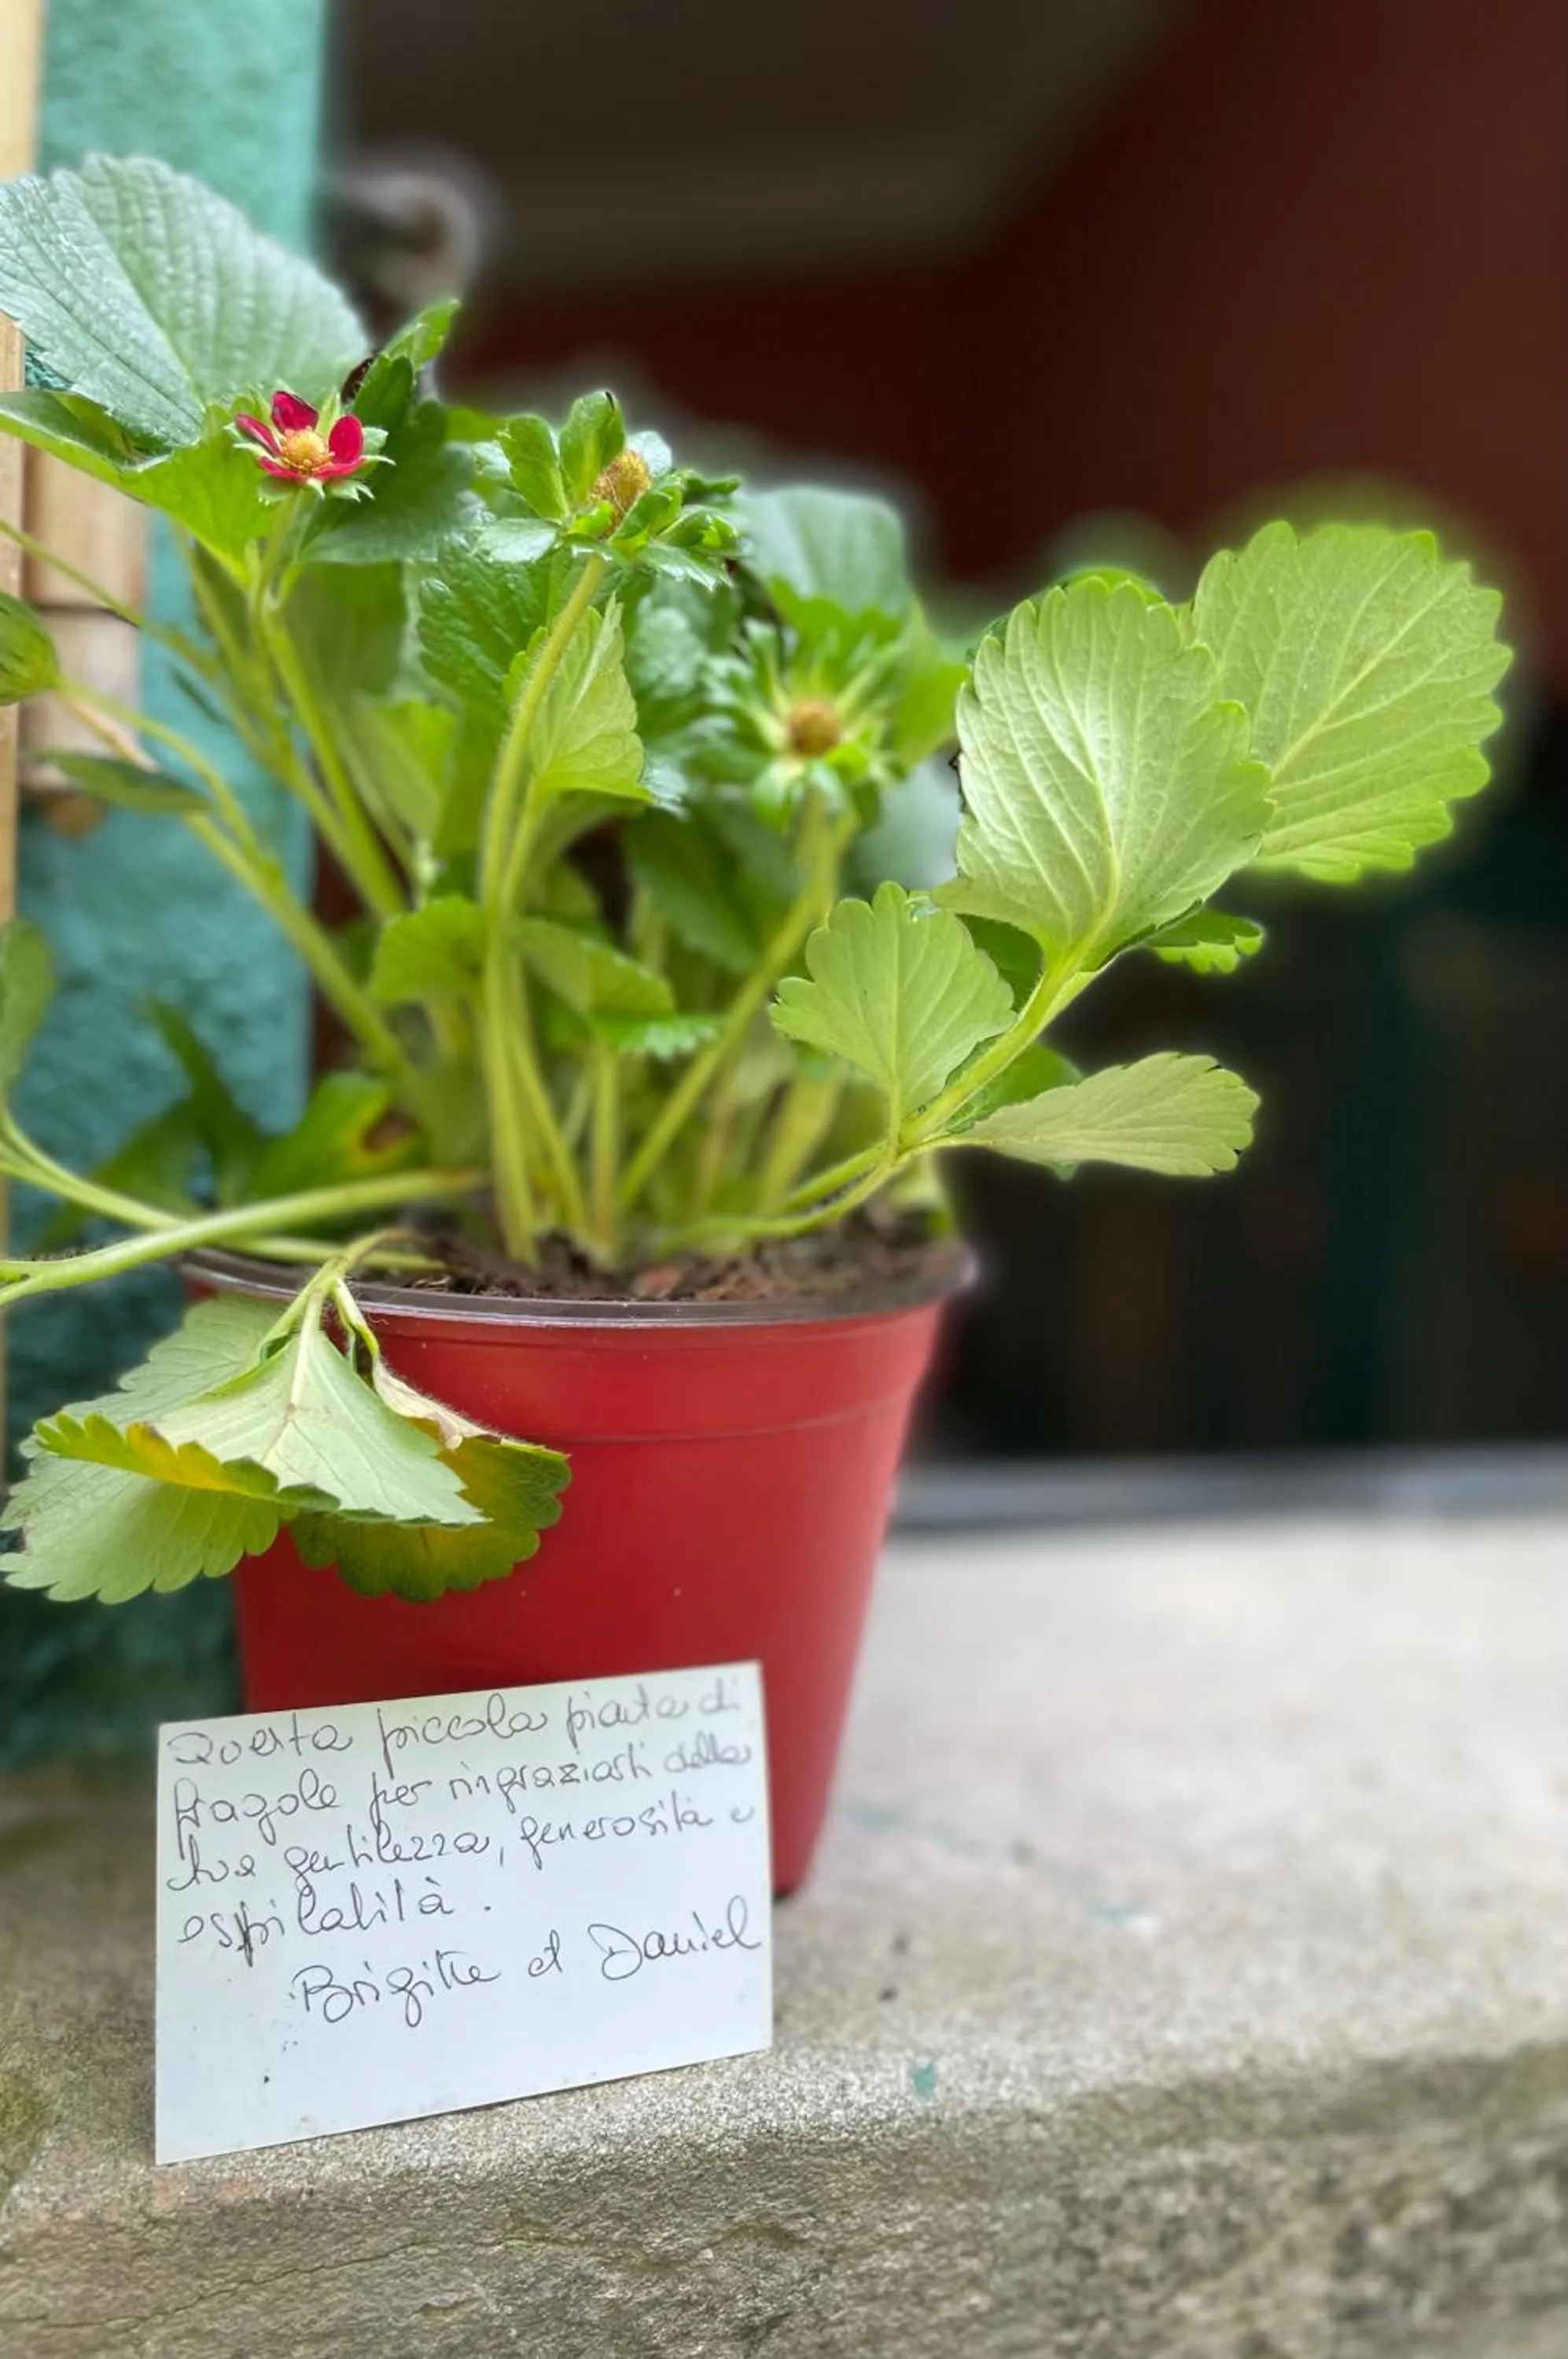 Questa piccola pianta di
fragole per ringraziarti della
tua gentilezza, generosità e
ospitalità.
Brigitte et Daniel